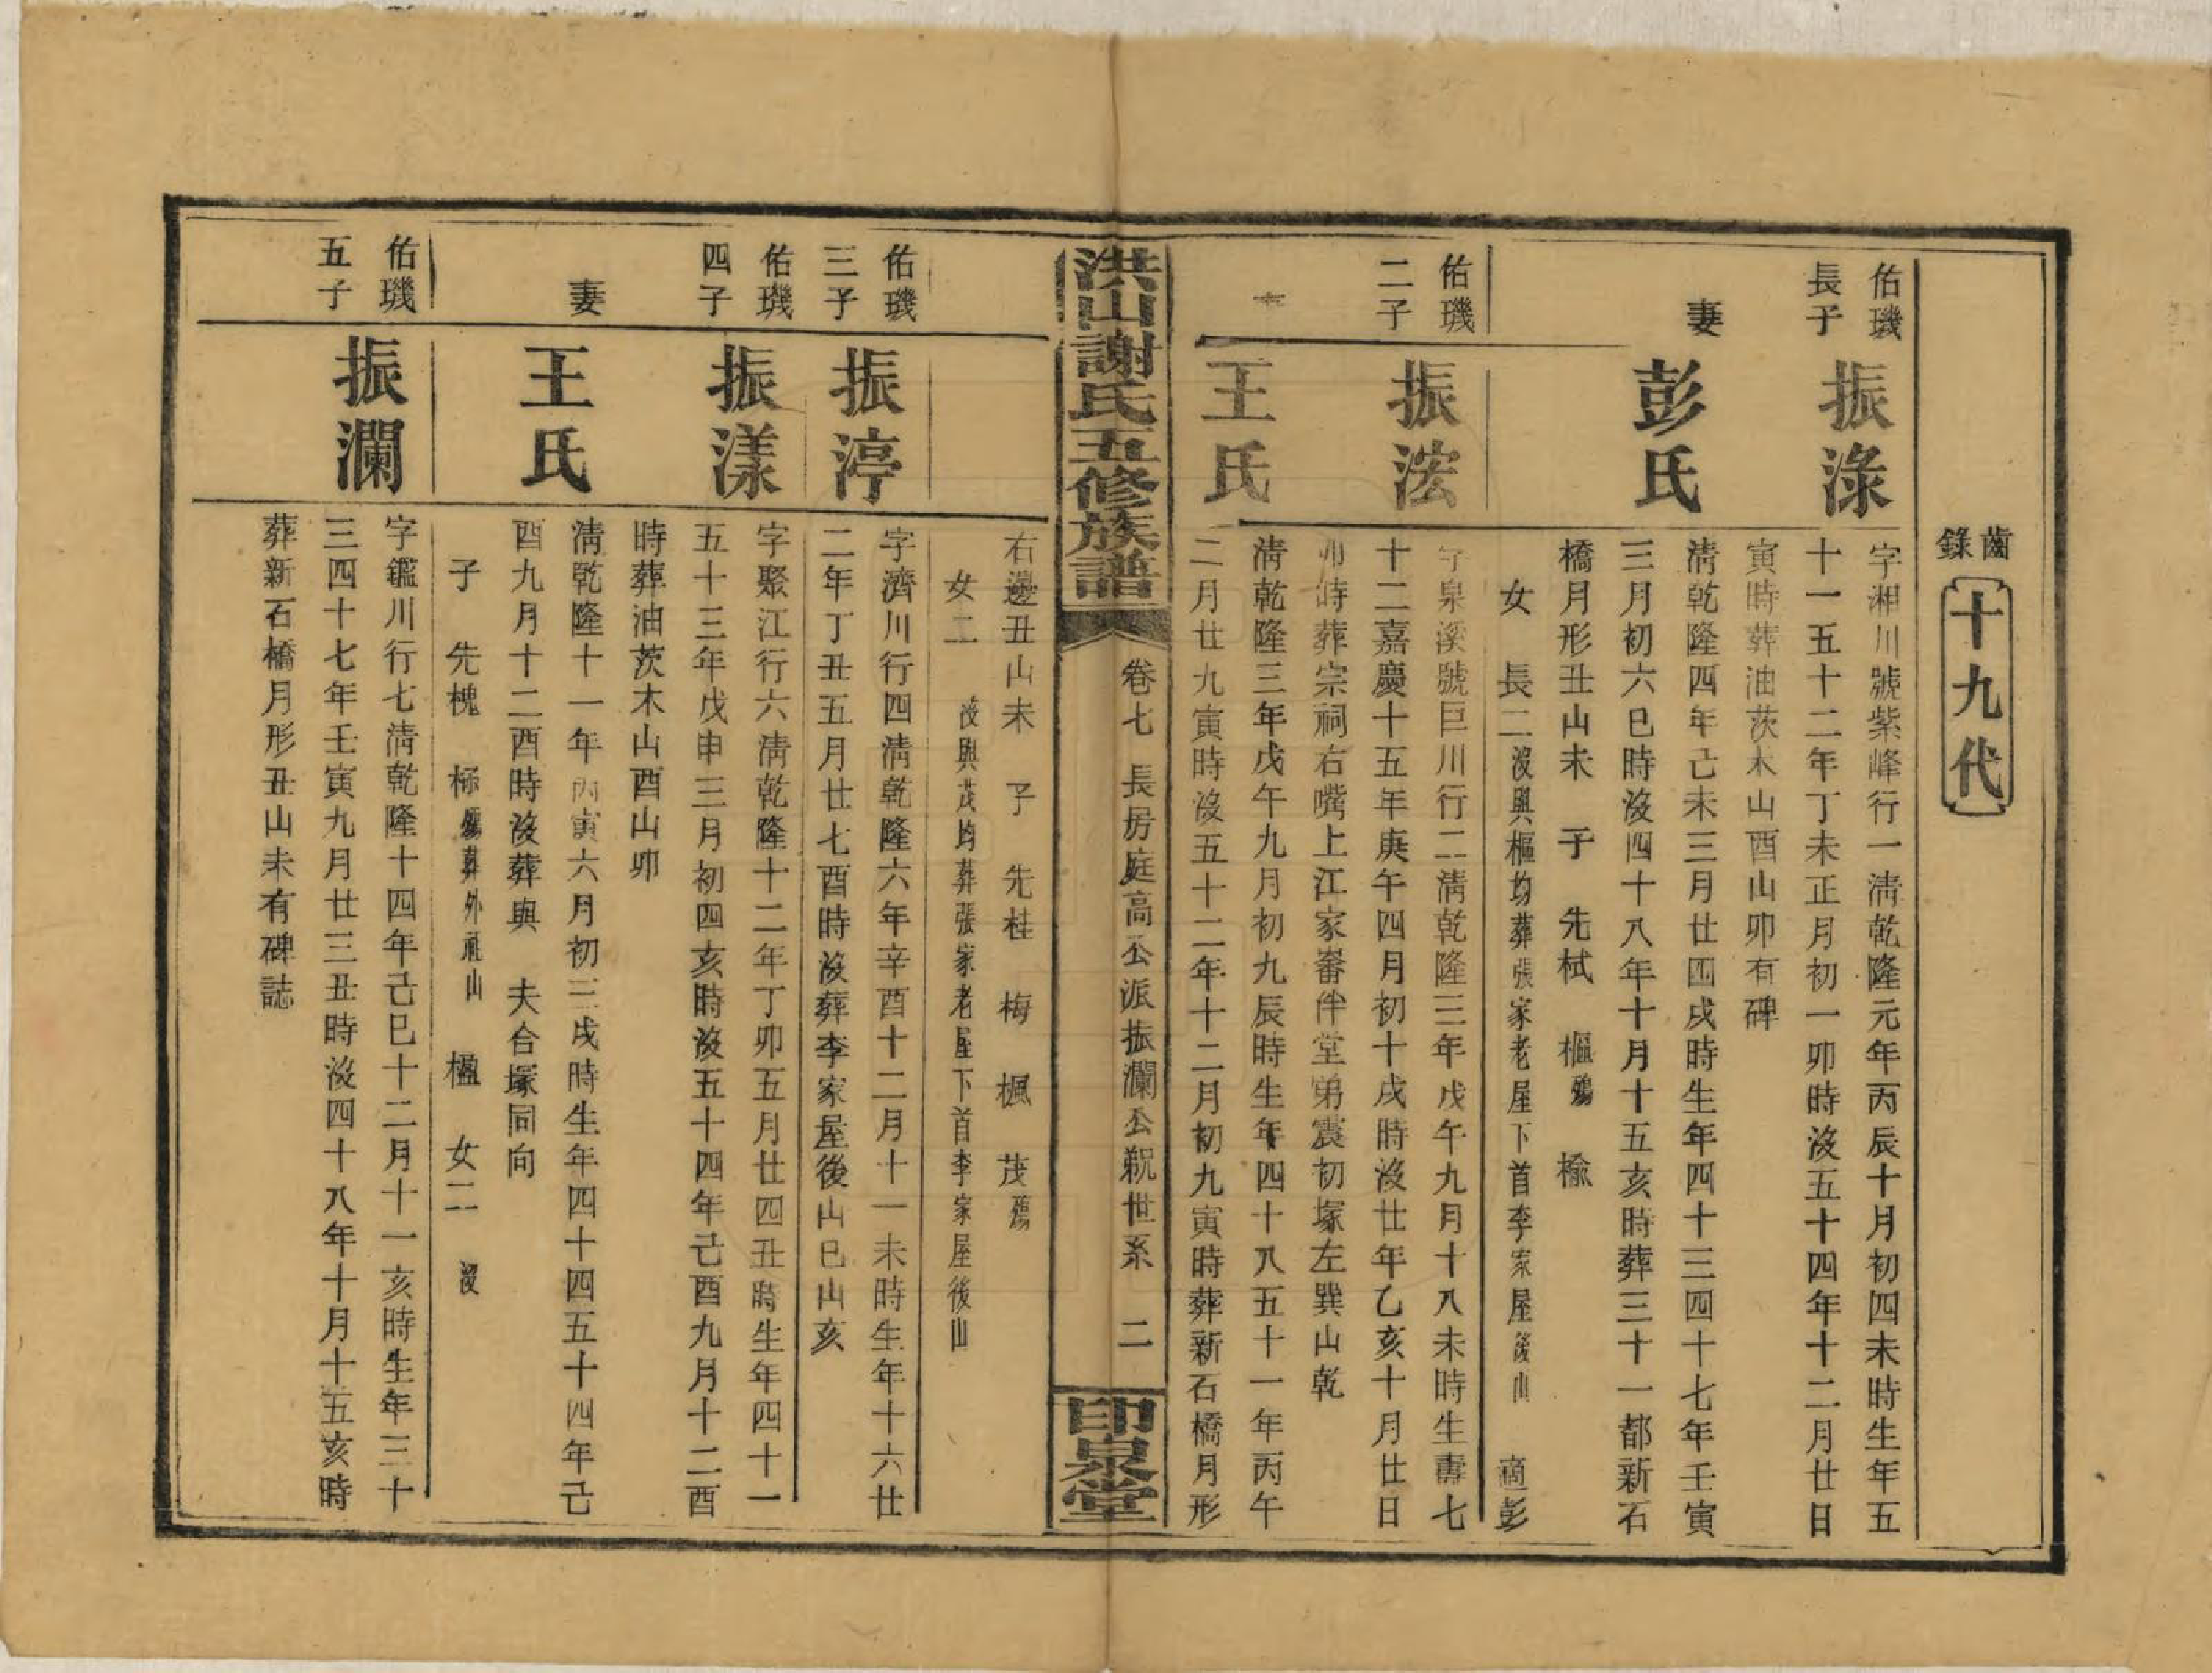 齒錄
十九代
佑璣長子
振淥
字湘川號紫峰行一淸乾隆元年丙辰十月初四未時生年五
十一五十二年丁未正月初一卯時沒五十四年十二月廿日
寅時葬油茨木山酉山卯有碑
妻
彭氏
淸乾隆四年己未三月廿四戌時生年四十三四十七年壬寅
三月初六巳時沒四十八年十月十五亥時葬三十一都新石
橋月形丑山未 子 先栻 樞殤 檢
女 長二沒與樞均葬張家老屋下首李家屋後山 適彭
佑璣二子
振浤
字泉溪號巨川行二淸乾隆三年戊午九月十八未時生壽七
十二嘉慶十五年庚午四月初十戌時沒廿年乙亥十月廿日
卯時葬宗祠右嘴上江家畬伴堂弟震初塚左巽山乾
王氏
淸乾隆三年戊午九月初九辰時生年四十八五十一年丙午
二月廿九寅時沒五十二年十二月初九寅時葬新石橋月形
洪山謝氏五修族譜
卷七 長房庭高公派振瀾公覾世系 二
印泉堂
右邊丑山未 子 先桂 梅 楓 茂殤
女二 沒與茂均葬張家老屋下首李家屋後山
佑璣三子
振渟
字濟川行四淸乾隆六年辛酉十二月十一未時生年十六廿
二年丁丑五月廿七酉時沒葬李家屋後山巳山亥
佑璣四子
振漾
字聚江行六淸乾隆十二年丁卯五月廿四丑時生年四十一
五十三年戊申三月初四亥時沒五十四年己酉九月十二酉
時葬油茨木山酉山卯
妻
王氏
淸乾隆十一年丙寅六月初三戌時生年四十四五十四年己
酉九月十二酉時沒葬與 夫合塚同向
子 先槐 殤葬外山 楹 女二 沒
佑璣五子
振瀾
字鑑川行七淸乾隆十四年己巳十二月十一亥時生年三十
三四十七年壬寅九月廿三丑時沒四十八年十月十五亥時
葬新石橋月形丑山未有碑誌